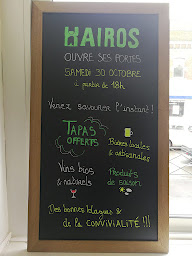 HAIROS
OUVRE SES PORTES
SAMEDI 30 OCTOBRE
à partir de 18h
Venez savourer l'instant !
TAPAS
OFFERTS
Bières locales
& artisanales
Vins bios
& naturels
Produits
de saison
Des bonnes blagues &
de la CONVIVIALITÉ !!!